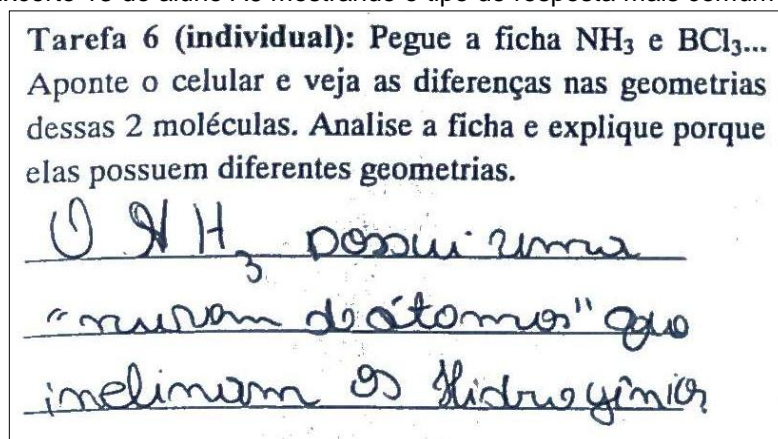 Tarefa 6 (individual): Pegue a ficha NH₃ e BCl₃...
Aponte o celular e veja as diferenças nas geometrias
dessas 2 moléculas. Analise a ficha e explique porque
elas possuem diferentes geometrias.
O NH₃ possui uma
"nuvem de átomos" que
inclinam os Hidrogênios